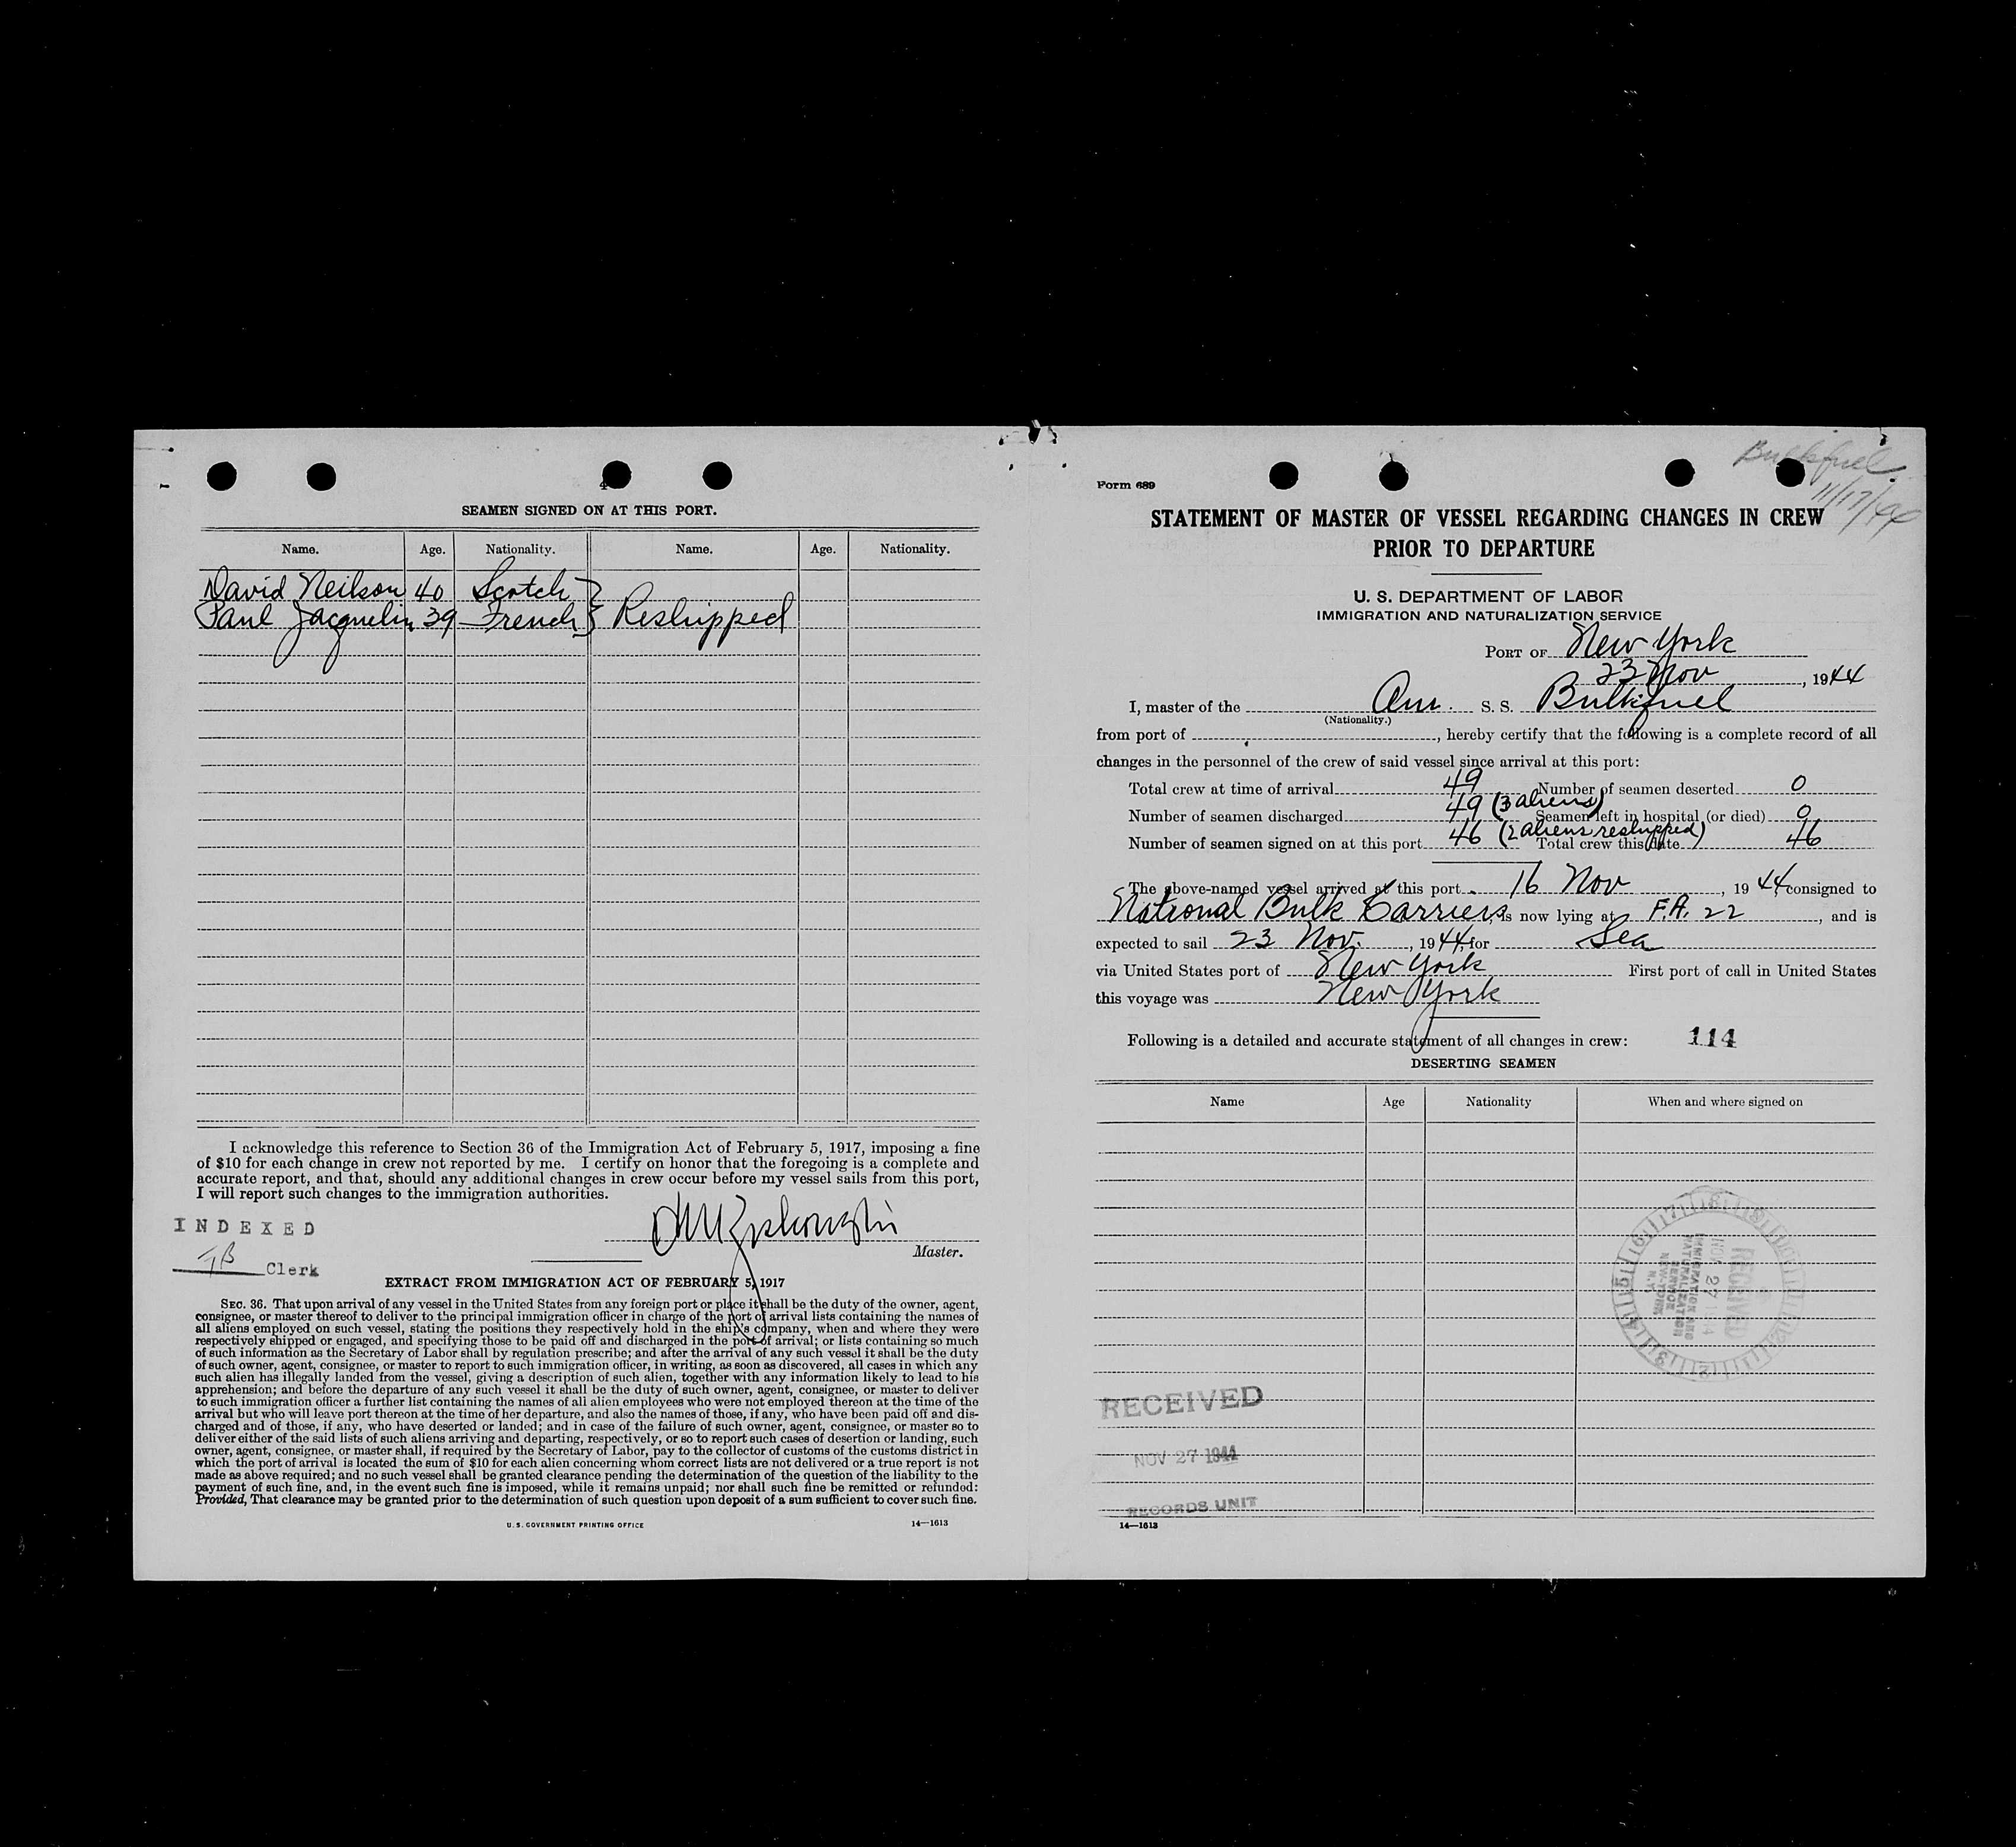 4
SEAMEN SIGNED ON AT THIS PORT.
Name. Age. Nationality. Name. Age. Nationality.
David Neilson 40 Scotch
Paul Jacquelin 39 French } Reshipped
I acknowledge this reference to Section 36 of the Immigration Act of February 5, 1917, imposing a fine
of $10 for each change in crew not reported by me. I certify on honor that the foregoing is a complete and
accurate report, and that, should any additional changes in crew occur before my vessel sails from this port,
I will report such changes to the immigration authorities.
INDEXED
Master.
Clerk
EXTRACT FROM IMMIGRATION ACT OF FEBRUARY 5, 1917
SEC. 36. That upon arrival of any vessel in the United States from any foreign port or place it shall be the duty of the owner, agent,
consignee, or master thereof to deliver to the principal immigration officer in charge of the port of arrival lists containing the names of
all aliens employed on such vessel, stating the positions they respectively hold in the ship's company, when and where they were
respectively shipped or engaged, and specifying those to be paid off and discharged in the port of arrival; or lists containing so much
of such information as the Secretary of Labor shall by regulation prescribe; and after the arrival of any such vessel it shall be the duty
of such owner, agent, consignee, or master to report to such immigration officer, in writing, as soon as discovered, all cases in which any
such alien has illegally landed from the vessel, giving a description of such alien, together with any information likely to lead to his
apprehension; and before the departure of any such vessel it shall be the duty of such owner, agent, consignee, or master to deliver
to such immigration officer a further list containing the names of all alien employees who were not employed thereon at the time of the
arrival but who will leave port thereon at the time of her departure, and also the names of those, if any, who have been paid off and dis-
charged and of those, if any, who have deserted or landed; and in case of the failure of such owner, agent, consignee, or master so to
deliver either of the said lists of such aliens arriving and departing, respectively, or so to report such cases of desertion or landing, such
owner, agent, consignee, or master shall, if required by the Secretary of Labor, pay to the collector of customs of the customs district in
which the port of arrival is located the sum of $10 for each alien concerning whom correct lists are not delivered or a true report is not
made as above required; and no such vessel shall be granted clearance pending the determination of the question of the liability to the
payment of such fine, and, in the event such fine is imposed, while it remains unpaid; nor shall such fine be remitted or refunded:
Provided, That clearance may be granted prior to the determination of such question upon deposit of a sum sufficient to cover such fine.
U. S. GOVERNMENT PRINTING OFFICE 14—1613
Bulkfuel
11/17/44
Form 689
STATEMENT OF MASTER OF VESSEL REGARDING CHANGES IN CREW
PRIOR TO DEPARTURE
U. S. DEPARTMENT OF LABOR
IMMIGRATION AND NATURALIZATION SERVICE
PORT OF New York
23 Nov, 1944
I, master of the Am. S. S. Bulkfuel
(Nationality.)
from port of , hereby certify that the following is a complete record of all
changes in the personnel of the crew of said vessel since arrival at this port:
Total crew at time of arrival 49 Number of seamen deserted 0
Number of seamen discharged 49 (3 aliens) Seamen left in hospital (or died) 0
Number of seamen signed on at this port 46 (2 aliens reshipped) Total crew this date 46
The above-named vessel arrived at this port 16 Nov, 1944, consigned to
National Bulk Carriers, is now lying at F.A. 22, and is
expected to sail 23 Nov., 1944, for Sea
via United States port of New York First port of call in United States
this voyage was New York
Following is a detailed and accurate statement of all changes in crew: 114
DESERTING SEAMEN
Name Age Nationality When and where signed on
RECEIVED
NOV 27 1944
IMMIGRATION AND
NATURALIZATION
SERVICE
NEW YORK
N.Y.
RECEIVED
NOV 27 1944
RECORDS UNIT
14—1613